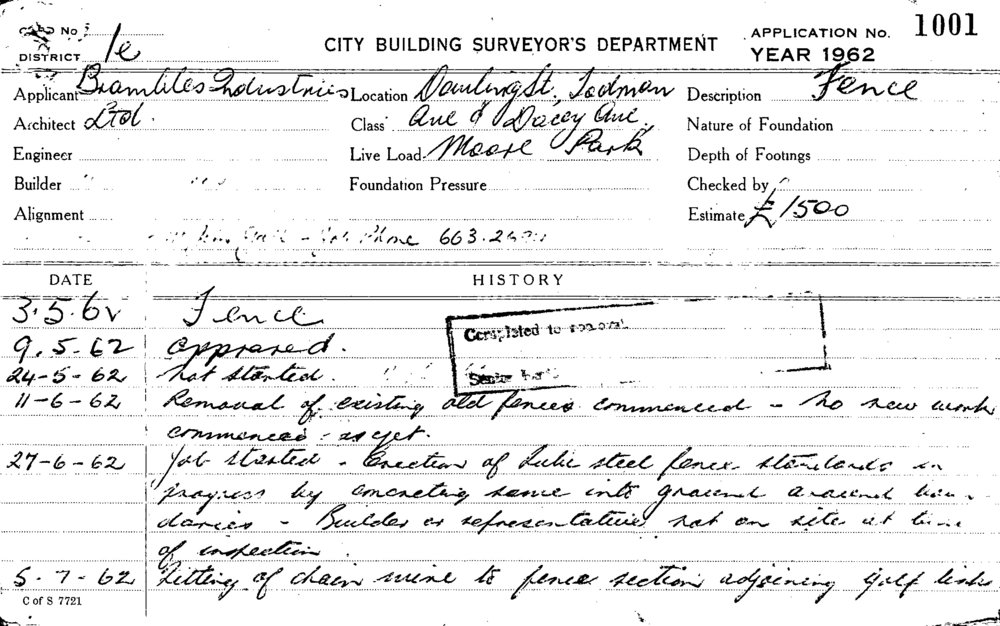 CARD No. APPLICATION No. 1001
DISTRICT 1e CITY BUILDING SURVEYOR'S DEPARTMENT YEAR 1962
Applicant Brambles Industries Location Dowling St, Todman Description Fence
Architect Ltd. Class Ave & Dacey Ave, Nature of Foundation
Engineer Live Load Moore Park Depth of Footings
Builder Foundation Pressure Checked by
Alignment Estimate £1500
Job Phone 663.
DATE HISTORY
3.5.62 Fence
9.5.62 approved.
Completed to
24-5-62 Not started.
Senior
11-6-62 Removal of existing old fences commenced - No new work
commenced as yet.
27-6-62 Job started - Erection of tube steel fence standards in
progress by concreting same into ground around boun-
daries - Builder or representative not on site at time
of inspection.
5-7-62 Fitting of chain wire to fence section adjoining golf links
C of S 7721